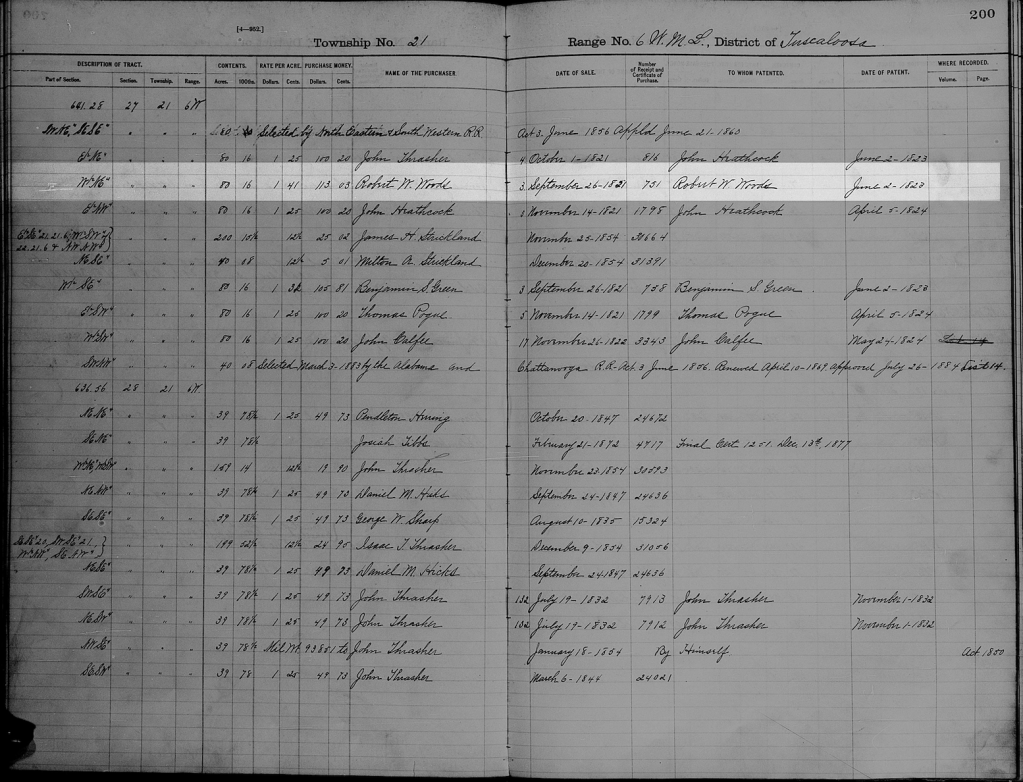 200
[4—952.]
Township No. 21 Range No. 6 W. M. L., District of Tuscaloosa
DESCRIPTION OF TRACT. CONTENTS. RATE PER ACRE. PURCHASE MONEY. NAME OF THE PURCHASER. DATE OF SALE. Number of Receipt and Certificate of Purchase. TO WHOM PATENTED. DATE OF PATENT. WHERE RECORDED.
Part of Section. Section. Township. Range. Acres. 100ths. Dollars. Cents. Dollars. Cents. Volume. Page.
641.28 27 21 6W
SW NE" SE SE" " " " 80 Selected by North Eastern & South Western R.R. Act 3. June 1856 Appl'd June 21-1860
E½ NE" " " " 80 16 1 25 100 20 John Thrasher 4 October 1-1821 816 John Heathcock June 2-1823
W½ NE" " " " 80 16 1 41 113 03 Robert W. Woods 3 September 26-1821 731 Robert W. Woods June 2-1823
E½ NW" " " " 80 16 1 25 100 20 John Heathcock November 14-1821 1798 John Heathcock April 5-1824
E½ SE" 21.21.6, W½ SW" 200 12½ 25 02 James H. Strickland November 25-1854 30664
22.21.6 & NW NW"
NE SE" " " " 40 08 12½ 5 01 Milton A. Strickland December 20-1854 31391
W½ SE" " " " 80 16 1 32 105 81 Benjamin S. Green 3 September 26-1821 738 Benjamin S. Green June 2-1823
E½ SW" " " " 80 16 1 25 100 20 Thomas Pogue 5 November 14-1821 1799 Thomas Pogue April 5-1824
W½ SW" " " " 80 16 1 25 100 20 John Calfee 17 November 26-1822 3343 John Calfee May 24-1824
SW NW" " " " 40 08 Selected March 3-1883 by the Alabama and Chattanooga R.R. Act 3 June 1856. Renewed April 10-1869. Approved July 26-1884 List 14.
636.56 28 21 6W
NE NE" " " " 39 78½ 1 25 49 73 Pendleton October 20-1847 24672
SE NE" " " " 39 78½ Josiah Tibbs February 21-1872 4717 Final Cert 1251. Dec. 13th, 1877
W½ NE" " " " 159 14 12½ 19 90 John Thrasher November 23-1854 30593
NE NW" " " " 39 78½ 1 25 49 73 Daniel M. Hicks September 24-1847 24636
SE SE" " " " 39 78½ 1 25 49 73 George W. Sharp August 10-1835 15324
SE SE" 20, SW SE" 21, 199 52½ 12½ 24 95 Isaac T. Thrasher December 9-1854 31056
W½ NW", SE NW"
NE SE" " " " 39 78½ 1 25 49 73 Daniel M. Hicks September 24-1847 24636
SW SE" " " " 39 78½ 1 25 49 73 John Thrasher 132 July 19-1832 7913 John Thrasher November 1-1832
NE SW" " " " 39 78½ 1 25 49 73 John Thrasher 132 July 19-1832 7912 John Thrasher November 1-1832
NW SE" " " " 39 78½ Mil. Wt. 93851 to John Thrasher January 18-1854 By Himself Act 1850
SE SW" " " " 39 78 1 25 49 73 John Thrasher March 6-1844 24021